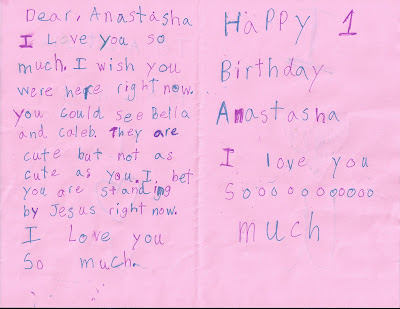 Dear, Anastasha
I Love you so
much. I wish you
were here right now.
you could see Bella
and caleb. They are
cute but not as
cute as you. I. bet
you are standing
by Jesus right now.
I Love you
So much.
HaPPY 1
Birthday
Anastasha
I love you
Soooooooooooo
much